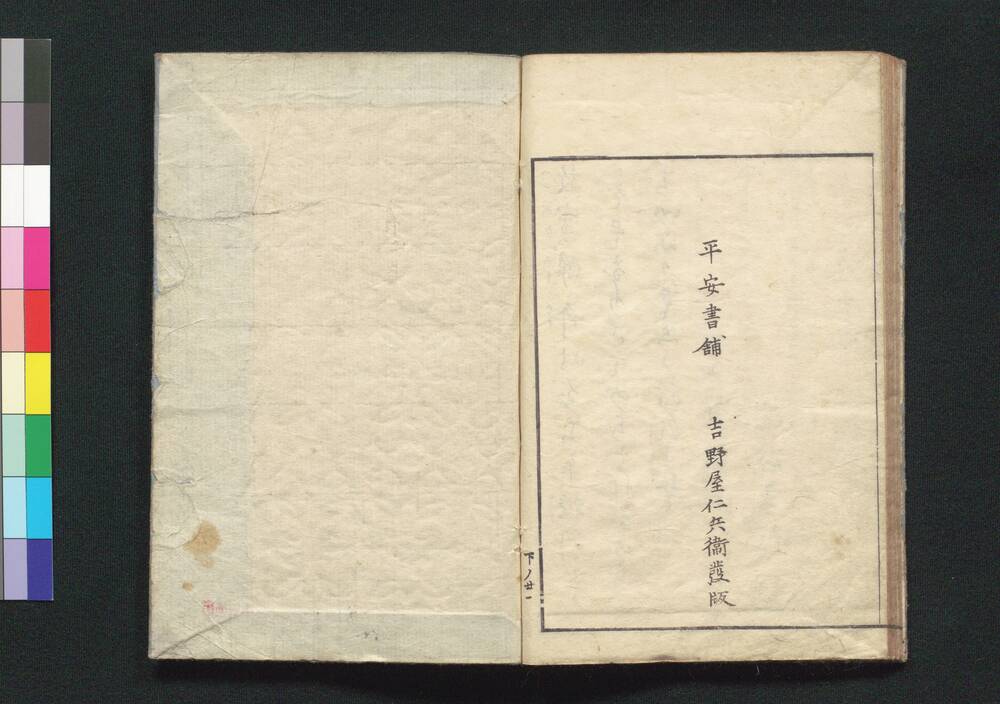 平安書舖　吉野屋仁兵衞發版
下ノ廿一